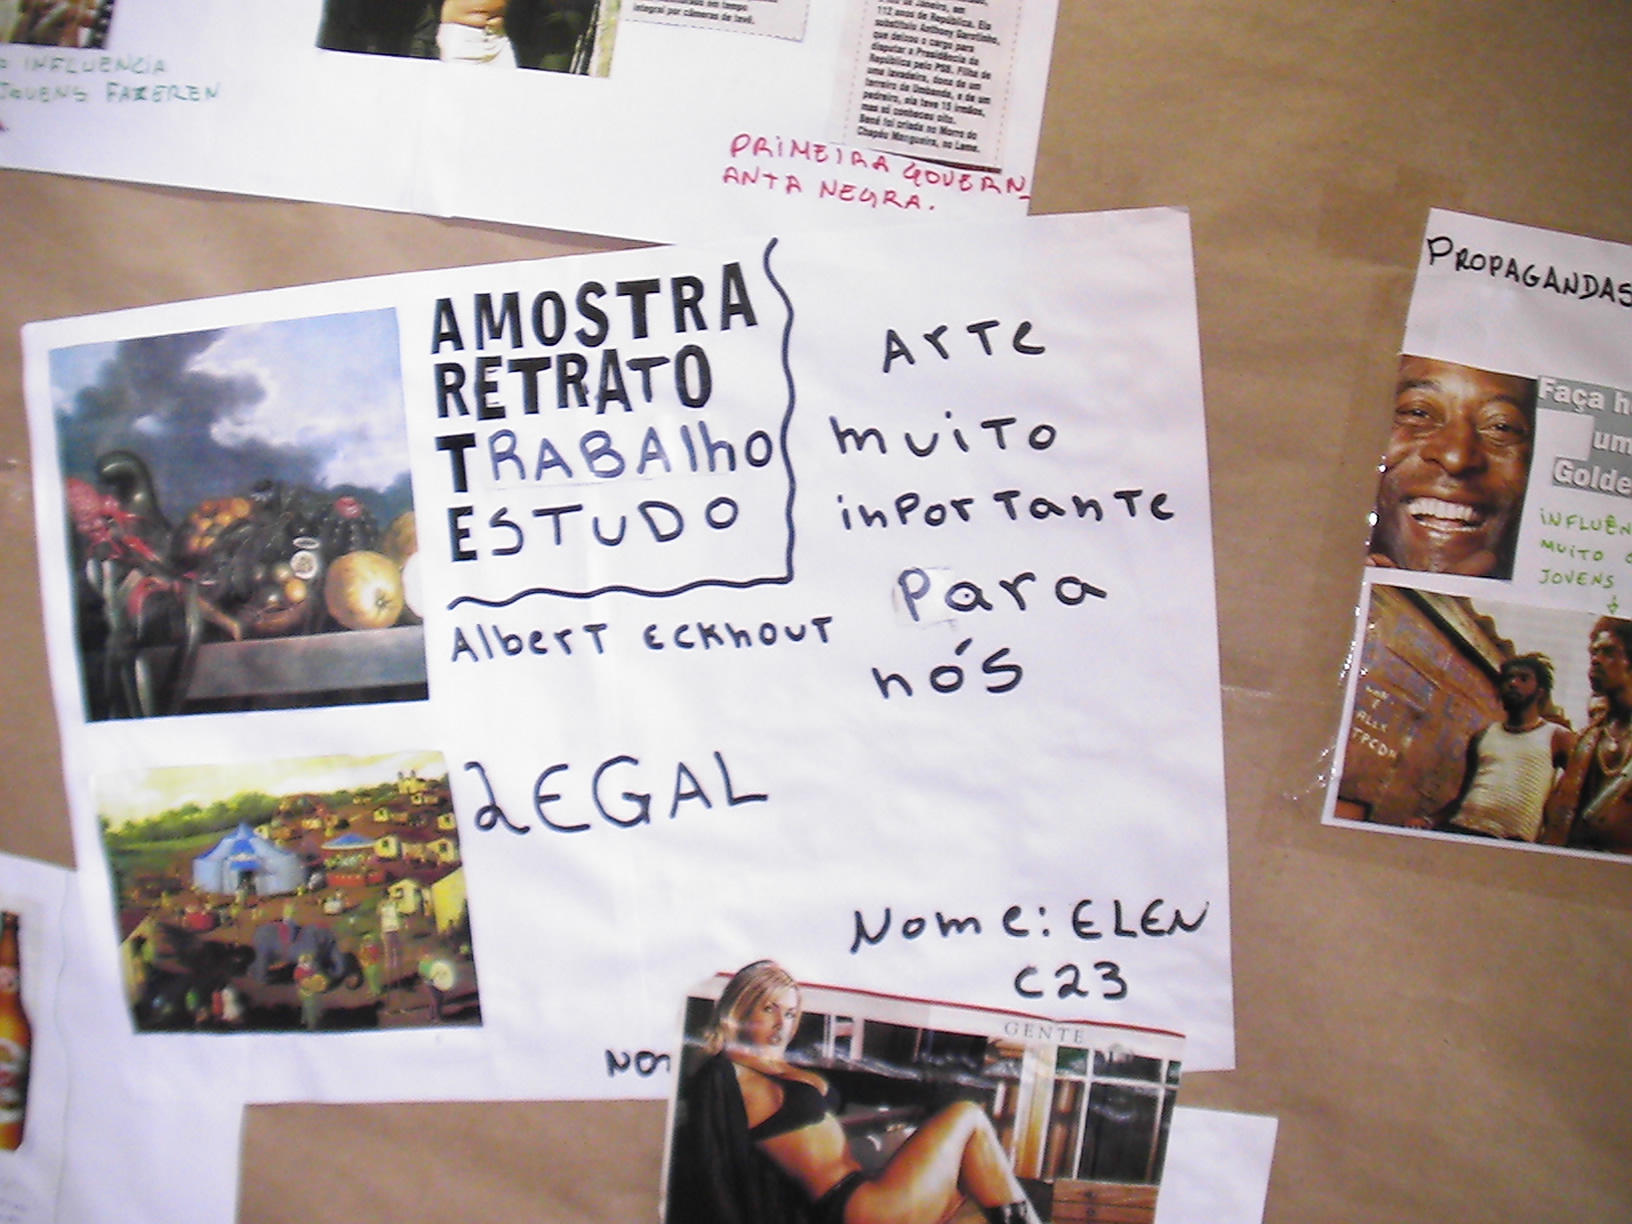 integral por câmeras de tevê.
112 anos de República. Ela
substituiu Anthony Garotinho,
que deixou o cargo para
disputar a Presidência da
República pelo PSB. Filha de
uma lavadeira, dona de um
terreiro de Umbanda, e de um
pedreiro, ela teve 15 irmãos,
mas só conheceu oito.
Bené foi criada no Morro do
Chapéu Mangueira, no Leme.
INFLUENCIA
JOVENS FAZEREN
PRIMEIRA GOVERN_
ANTA NEGRA.
AMOSTRA
RETRATO
TRABAlho
ESTUDO
AlberT Eckhout
ArTe
muiTo
inPorTanTe
Para
nós
LEGAL
Nome: ELEN
C23
GENTE
PROPAGANDAS
Faça
um
Golde
MUITO
JOVENS